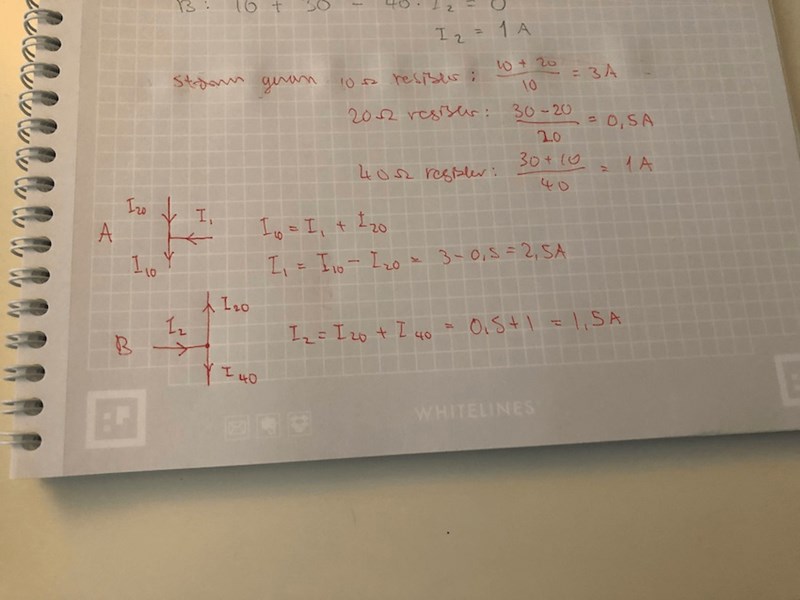 B: 10 + 30 - 40 · I₂ = 0
I₂ = 1 A
Strøm genom 10Ω resistor: (10 + 20)/10 = 3A
20Ω resistor: (30 - 20)/20 = 0,5A
40Ω resistor: (30 + 10)/40 = 1A
I₂₀
I₁
A
I₁₀
I₁₀ = I₁ + I₂₀
I₁ = I₁₀ - I₂₀ = 3 - 0,5 = 2,5A
I₂₀
I₂
B
I₄₀
I₂ = I₂₀ + I₄₀ = 0,5 + 1 = 1,5A
WHITELINES